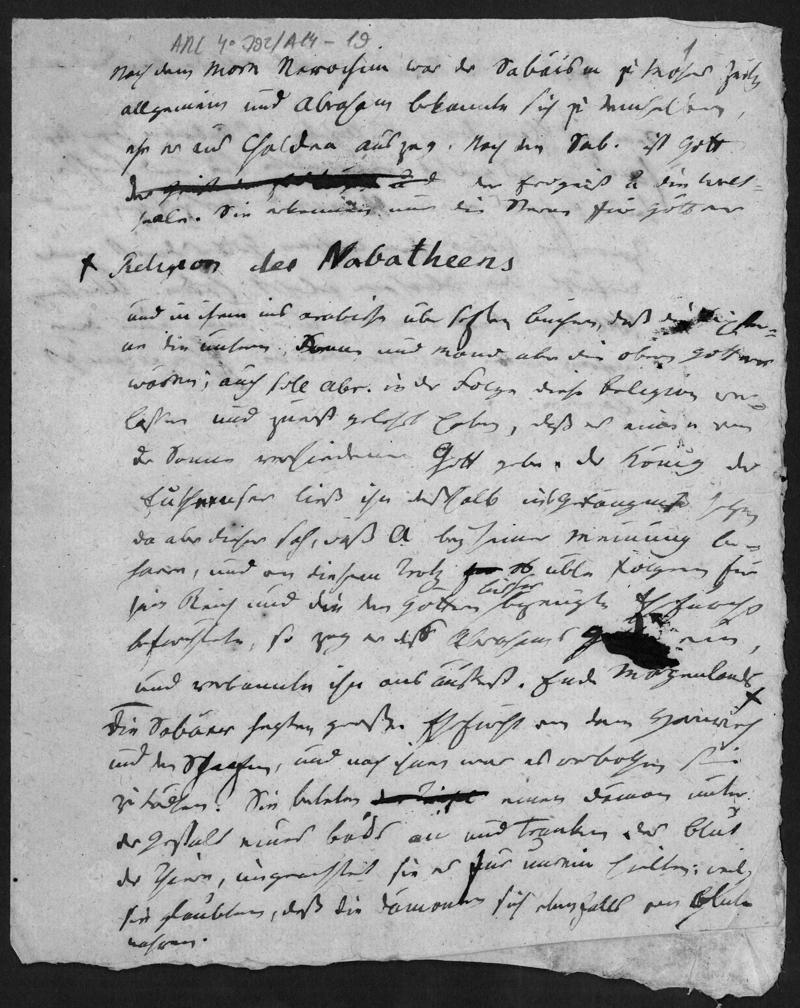 19
1
Nach dem More Nevochim war der Sabäism zu Moses Zeite
allgemein und Abraham bekannte sich zu demselben,
ehe er aus Chaldea auszog. Nach den Sab. ist Gott
der Geist der
der Erdgeist die Welt=
seele. Sie erkennen nur die Sterne für Götter
+ Religion des Nabatheens
und in ihren ins arabische über setzten buchern, daß die
an die untern, Sonne und Mond aber die obern Götter
wären; auch solle Abr. in der Folge diese Religion ver=
lassen und zuerst gelehrt haben, daß es einen von
der Sonne verschiedenen Gott gebe. der König der
ließ ihn deßhalb ins Gefängniß setzen
da aber dieser sah, daß A bey seiner Meinung be=
harre, und von diesem Trotz üble Folgen für
sein Reich und die den Göttern bisher bezeugte Ehrfurcht
befürchtete, so zog er deß Abrahams ein,
und verbannte ihn ans äußerst. Ende Morgenlands +
Die Sabäer hegten große Ehrfurcht vor dem
und den Schaafen, und nach ihnen war es verbothen sie
zu tödten. Sie beteten einen Dämon unter
der Gestalt eines boks an und tranken das Blut
der Thiere, ungeachtet sie es für unrein hielten; weil
sie glaubten, daß die Dämonen sich ebenfalls von Blute
nähren.